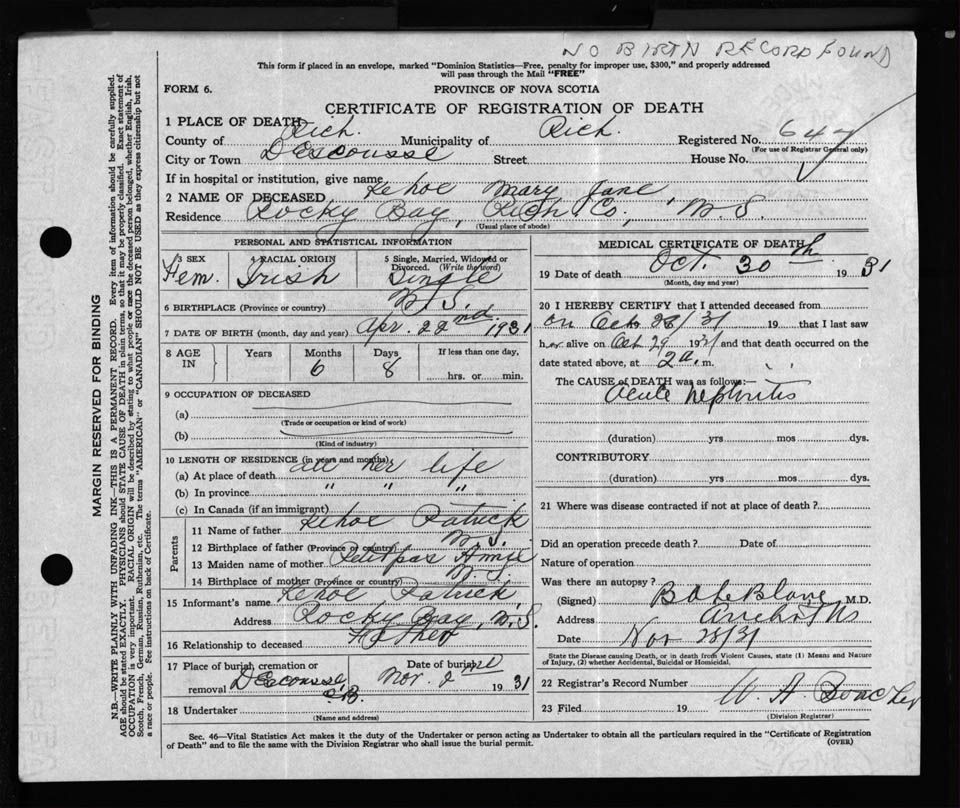 NO BIRTH RECORD FOUND
This form if placed in an envelope, marked "Dominion Statistics—Free, penalty for improper use, $300," and properly addressed
will pass through the Mail "FREE"
FORM 6. PROVINCE OF NOVA SCOTIA
CERTIFICATE OF REGISTRATION OF DEATH
1 PLACE OF DEATH
County of Rich. Municipality of Rich. Registered No. 647
(For use of Registrar General only)
City or Town DEscousse Street House No.
If in hospital or institution, give name
2 NAME OF DECEASED Kehoe Mary Jane
Residence Rocky Bay, Rich Co., N.S.
(Usual place of abode)
PERSONAL AND STATISTICAL INFORMATION
3 SEX Fem. 4 RACIAL ORIGIN Irish 5 Single, Married, Widowed or Divorced. (Write the word) Single
6 BIRTHPLACE (Province or country) N.S.
7 DATE OF BIRTH (month, day and year) Apr. 22nd 1931
8 AGE IN Years Months 6 Days 8 If less than one day, hrs. or min.
9 OCCUPATION OF DECEASED
(a)
(Trade or occupation or kind of work)
(b)
(Kind of industry)
10 LENGTH OF RESIDENCE (in years and months)
(a) At place of death all her life
(b) In province " " "
(c) In Canada (if an immigrant)
Parents
11 Name of father Kehoe Patrick
12 Birthplace of father (Province or country) N.S.
13 Maiden name of mother Petitpas Amie
14 Birthplace of mother (Province or country) N.S.
15 Informant's name Kehoe Patrick
Address Rocky Bay, N.S.
16 Relationship to deceased Father
17 Place of burial, cremation or removal DEscousse C.B. Date of burial Nov. 2nd 1931
18 Undertaker
(Name and address)
MEDICAL CERTIFICATE OF DEATH
19 Date of death Oct. 30th 1931
(Month, day and year)
20 I HEREBY CERTIFY that I attended deceased from
on Oct 28/31 19 that I last saw
her alive on Oct 29 1931 and that death occurred on the
date stated above, at 2 a. m.
The CAUSE of DEATH was as follows:—
Acute nephritis
(duration) yrs mos dys.
CONTRIBUTORY
(duration) yrs. mos dys.
21 Where was disease contracted if not at place of death?
Did an operation precede death? Date of
Nature of operation
Was there an autopsy?
(Signed) M.D.
Address Arichat NS
Date Nov 28/31
State the Disease causing Death, or in death from Violent Causes, state (1) Means and Nature
of Injury, (2) whether Accidental, Suicidal or Homicidal.
22 Registrar's Record Number
23 Filed 19 W. A.
(Division Registrar)
Sec. 46—Vital Statistics Act makes it the duty of the Undertaker or person acting as Undertaker to obtain all the particulars required in the "Certificate of Registration
of Death" and to file the same with the Division Registrar who shall issue the burial permit. (OVER)
MARGIN RESERVED FOR BINDING
N.B.—WRITE PLAINLY WITH UNFADING INK—THIS IS A PERMANENT RECORD. Every item of information should be carefully supplied.
AGE should be stated EXACTLY. PHYSICIANS should STATE CAUSE OF DEATH in plain terms, so that it may be properly classified. Exact statement of
OCCUPATION is very important. RACIAL ORIGIN will be described by stating to what people or race the deceased person belonged, whether English, Irish,
Scotch, French, German, Russian, Ruthenian, etc. The terms "AMERICAN" or "CANADIAN" SHOULD NOT BE USED as they express citizenship but not
a race or people. See instructions on back of Certificate.